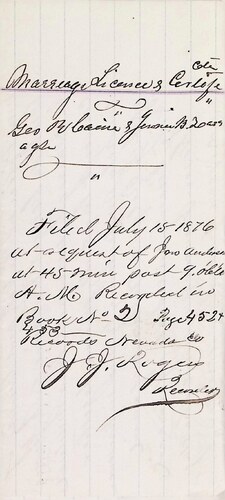 cte
Marriage License & Certifi
"
Geo W Caine & Jennie B.
agh
"
Filed July 15 1876
at request of Jno
at 45 min past 9. oclk
A. M. Recorded in
Book No 2 Page 452 &
453
Records Nevada Co
J. J. Rogers
Recorder